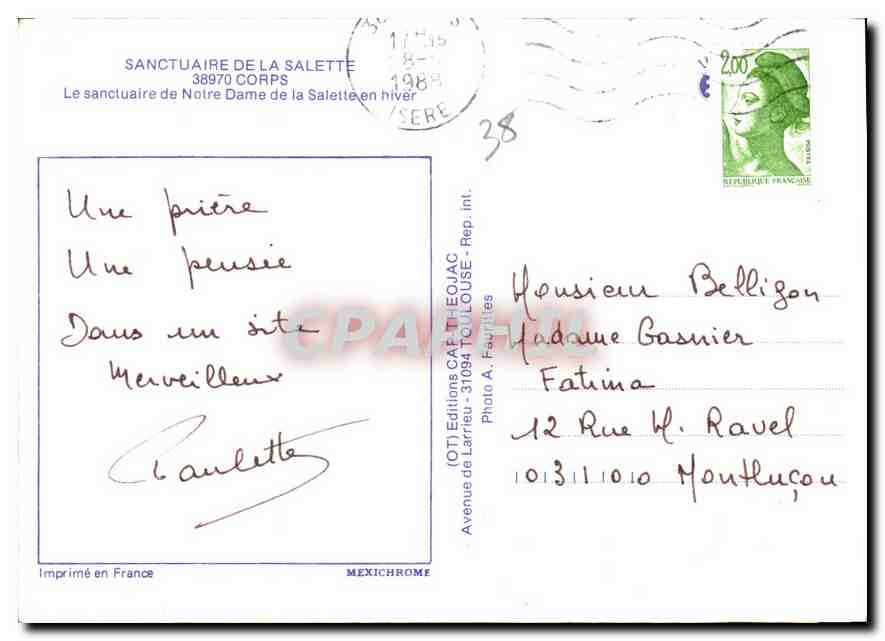 SANCTUAIRE DE LA SALETTE
38970 CORPS
Le sanctuaire de Notre Dame de la Salette en hiver
1988
ISERE
38
2,00
POSTES
REPUBLIQUE FRANÇAISE
Une prière
Une pensée
Dans un site
Merveilleux
Paulette
Imprimé en France
MEXICHROME
(OT) Editions CAP-THEOJAC
Avenue de Larrieu - 31094 TOULOUSE - Rep. int.
Photo A. Faurittes
Monsieur Belligon
Madame Gasnier
Fatima
12 Rue M. Ravel
03100 Montluçon
CPAPHIL